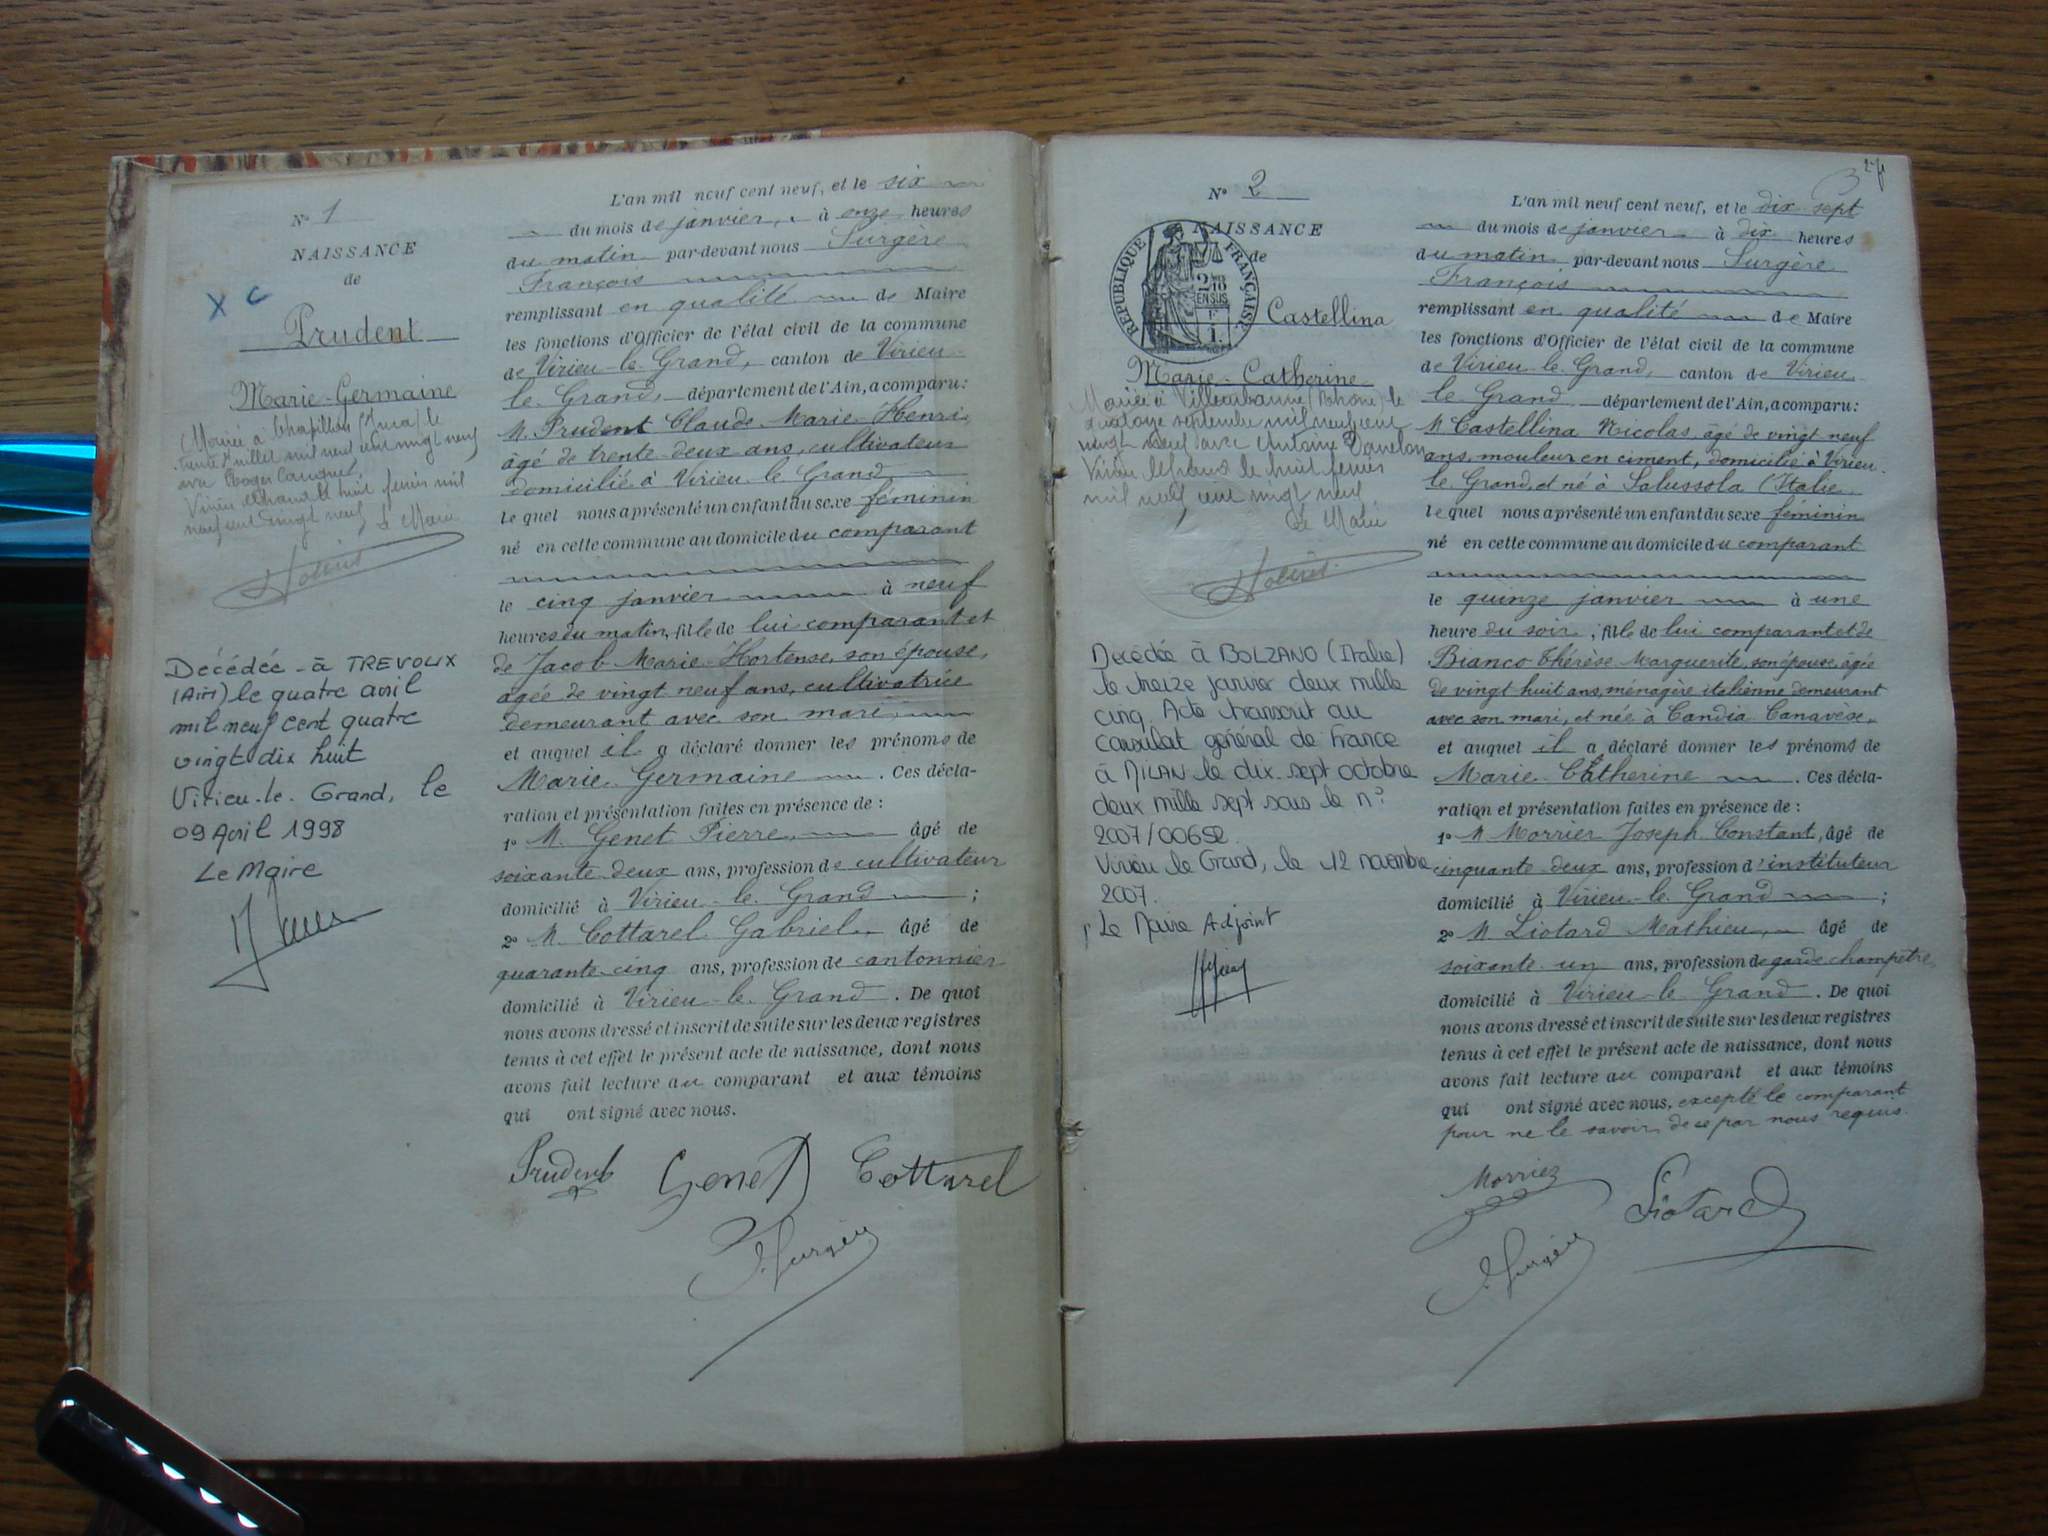 N° 1
NAISSANCE
de
X C
Prudent
Marie-Germaine
Mariée à Chapillon (Jura) le
trente juillet mil neuf cent vingt neuf
avec Roger
Virieu le huit février mil
neuf cent vingt neuf
Le Maire
Décédée - à TREVOUX
(Ain) le quatre avril
mil neuf cent quatre
vingt dix huit
Virieu-le-Grand, le
09 Avril 1998
Le Maire
L'an mil neuf cent neuf, et le six
du mois de janvier, à onze heures
du matin par-devant nous Surgère
François
remplissant en qualité de Maire
les fonctions d'Officier de l'état civil de la commune
de Virieu-le-Grand, canton de Virieu-
le-Grand, département de l'Ain, a comparu:
M. Prudent Claude-Marie-Henri,
âgé de trente-deux ans, cultivateur
domicilié à Virieu-le-Grand
lequel nous a présenté un enfant du sexe féminin
né en cette commune au domicile du comparant
le cinq janvier à neuf
heures du matin, fille de lui comparant et
de Jacob Marie-Hortense, son épouse,
âgée de vingt neuf ans, cultivatrice
demeurant avec son mari,
et auquel il a déclaré donner les prénoms de
Marie-Germaine . Ces décla-
ration et présentation faites en présence de :
1° M. Genet Pierre, âgé de
soixante-deux ans, profession de cultivateur
domicilié à Virieu-le-Grand ;
2° M. Cottarel Gabriel, âgé de
quarante-cinq ans, profession de cantonnier
domicilié à Virieu-le-Grand . De quoi
nous avons dressé et inscrit de suite sur les deux registres
tenus à cet effet le présent acte de naissance, dont nous
avons fait lecture au comparant et aux témoins
qui ont signé avec nous.
Prudent Genet Cottarel
F. Surgère
N° 2
NAISSANCE
de
RÉPUBLIQUE FRANÇAISE
2/10 EN SUS
Castellina
Marie-Catherine
Mariée à Villeurbanne (Rhône) le
quatorze septembre mil neuf cent
vingt neuf avec Antoine
Virieu le Grand le huit février
mil neuf cent vingt neuf
Le Maire
Décédée à BOLZANO (Italie)
le treize janvier deux mille
cinq. Acte transcrit au
Consulat général de France
à MILAN le dix-sept octobre
deux mille sept sous le n°
2007/00652.
Virieu le Grand, le 12 novembre
2007.
Le Maire Adjoint
L'an mil neuf cent neuf, et le dix-sept
du mois de janvier à dix heures
du matin par-devant nous Surgère
François
remplissant en qualité de Maire
les fonctions d'Officier de l'état civil de la commune
de Virieu-le-Grand, canton de Virieu-
le-Grand département de l'Ain, a comparu:
M Castellina Nicolas, âgé de vingt neuf
ans, mouleur en ciment, domicilié à Virieu-
le-Grand, et né à Salussola (Italie
lequel nous a présenté un enfant du sexe féminin
né en cette commune au domicile du comparant
le quinze janvier à une
heure du soir, fille de lui comparant et de
Bianco Thérèse Marguerite, son épouse, âgée
de vingt huit ans, ménagère italienne demeurant
avec son mari, et née à Candia Canavèse,
et auquel il a déclaré donner les prénoms de
Marie-Catherine . Ces décla-
ration et présentation faites en présence de :
1° M Morrier Joseph Constant, âgé de
cinquante-deux ans, profession d'instituteur
domicilié à Virieu-le-Grand ;
2° M. Liotard Mathieu, âgé de
soixante-un ans, profession de garde champêtre
domicilié à Virieu-le-Grand . De quoi
nous avons dressé et inscrit de suite sur les deux registres
tenus à cet effet le présent acte de naissance, dont nous
avons fait lecture au comparant et aux témoins
qui ont signé avec nous, excepté le comparant
pour ne le savoir de ce par nous requis.
Morrier Liotard
F. Surgère